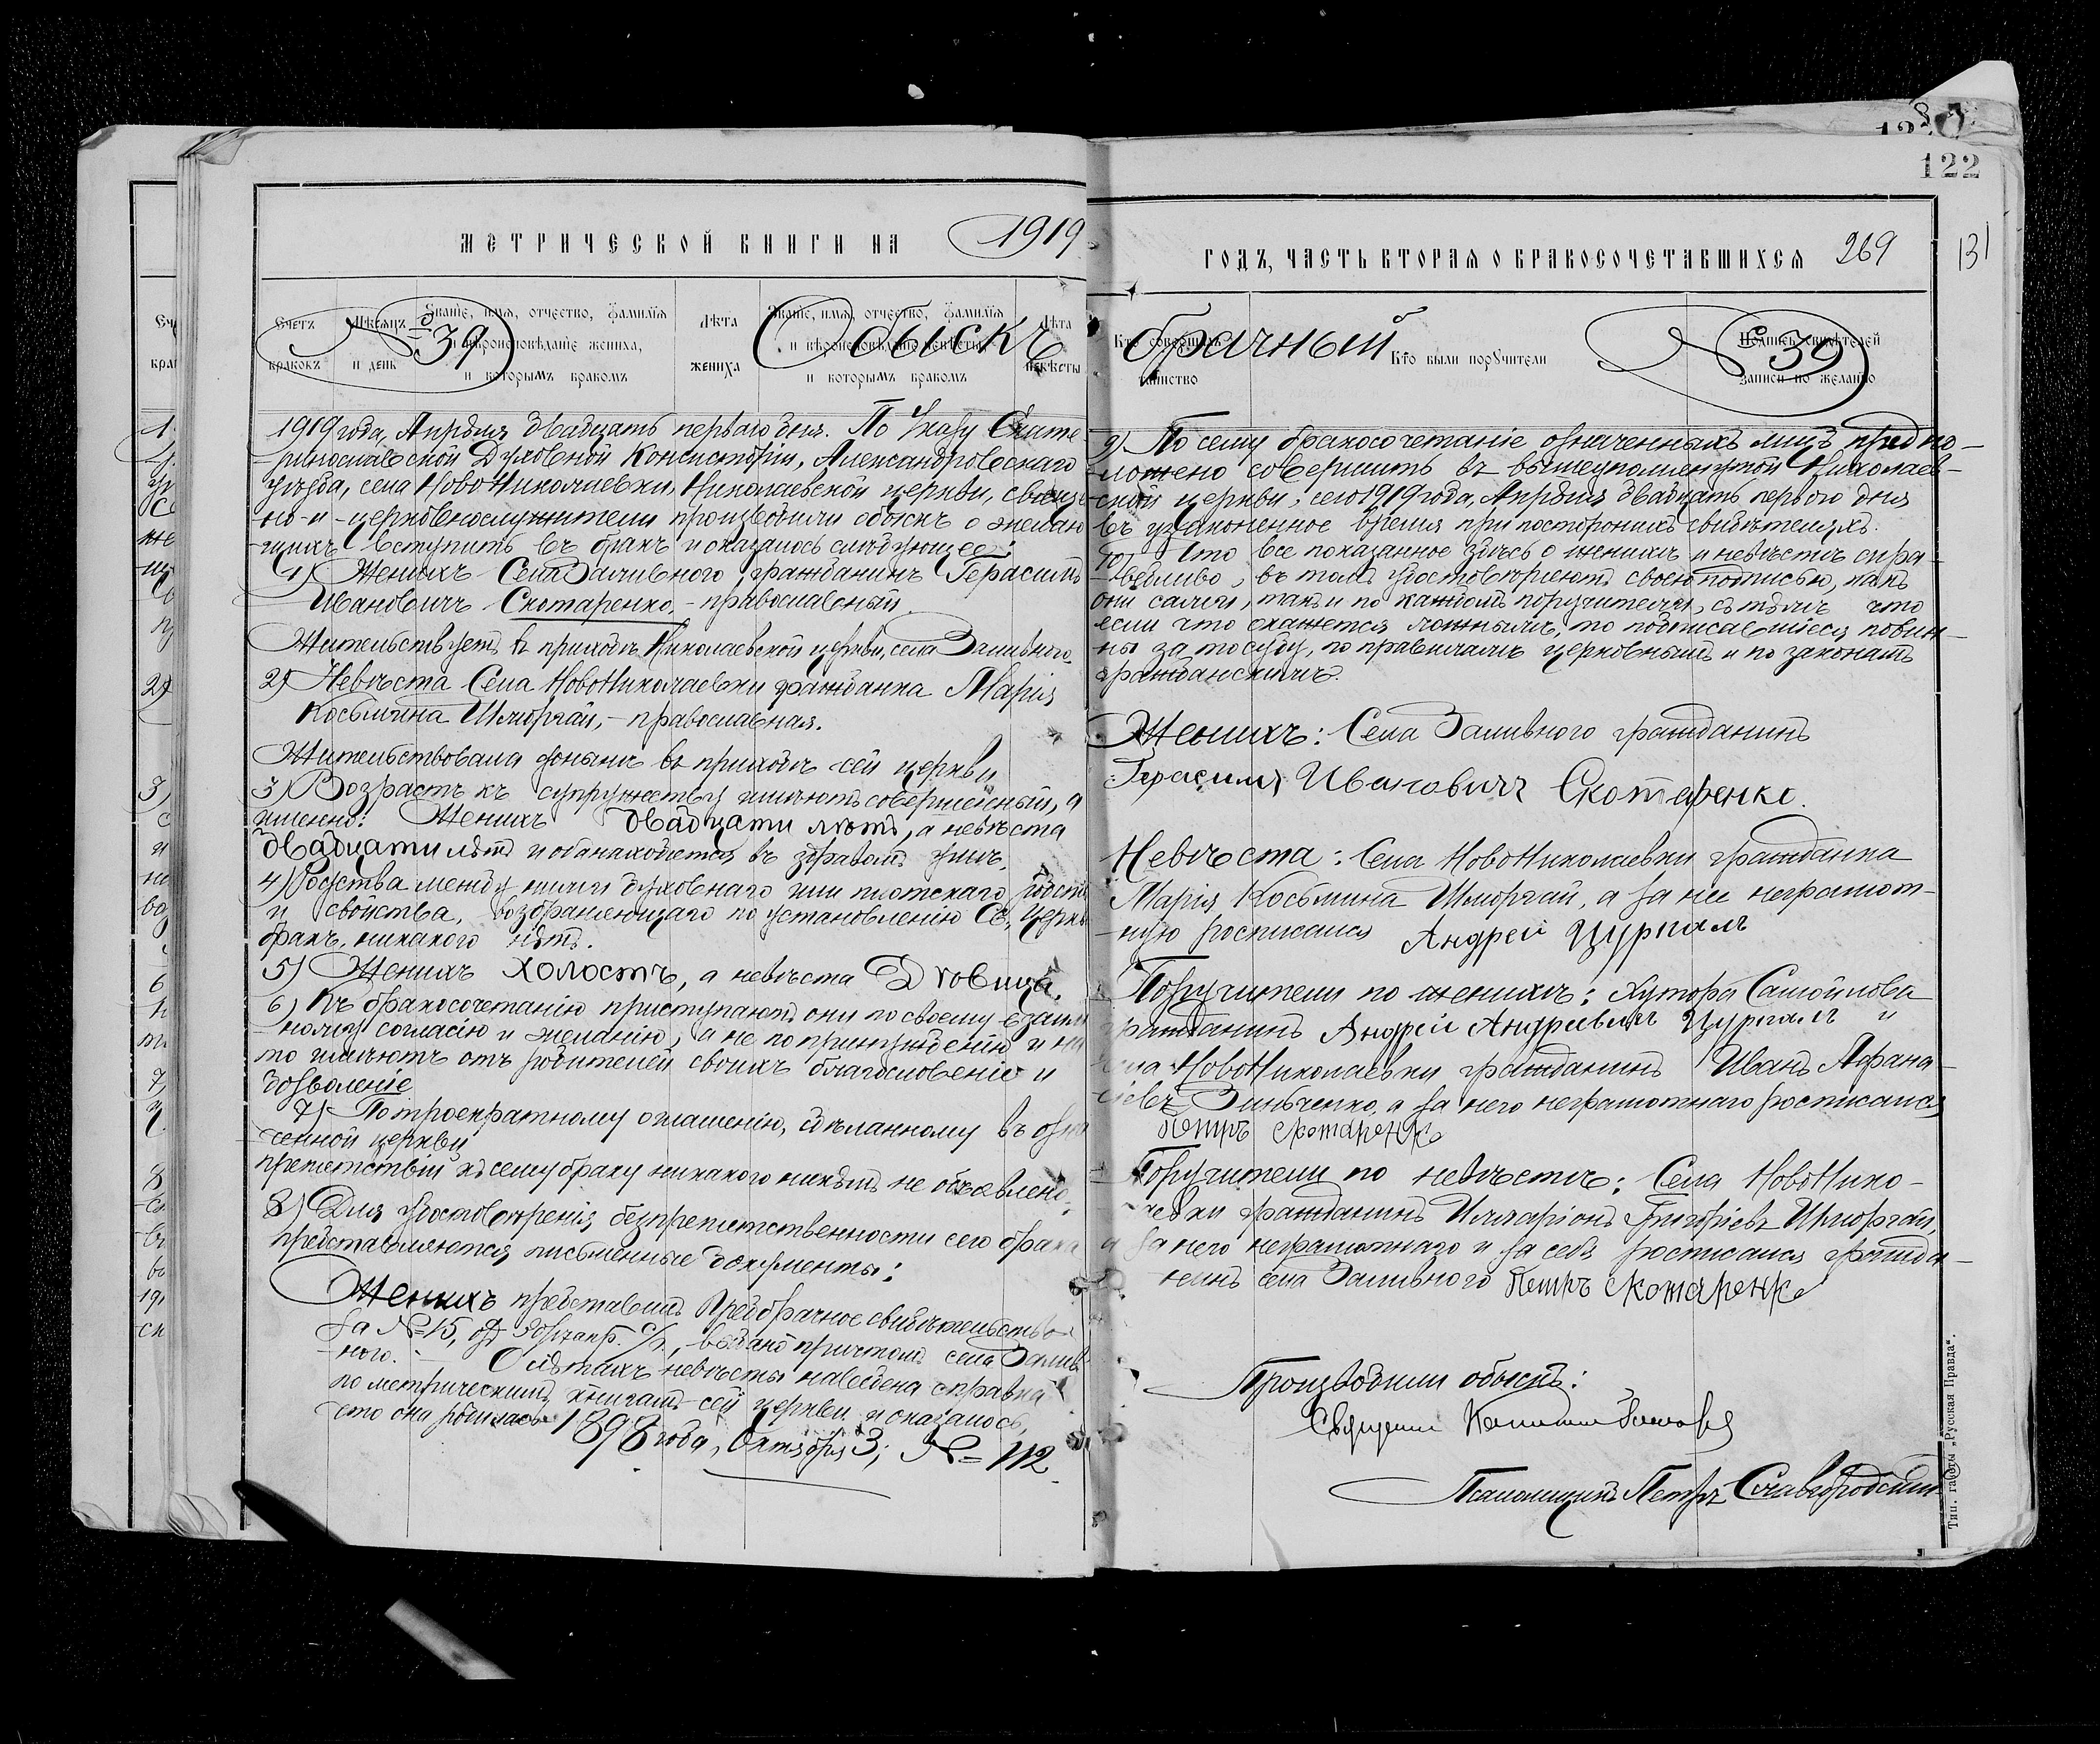 122
МЕТРИЧЕСКОЙ КНИГИ НА 1919
ГОДЪ, ЧАСТЬ ВТОРАЯ О БРАКОСОЧЕТАВШИХСЯ 269
131
Счетъ браковъ
Мѣсяцъ и день
Званіе, имя, отчество, фамилія и вѣроисповѣданіе жениха, и которымъ бракомъ
Лѣта жениха
Званіе, имя, отчество, фамилія и вѣроисповѣданіе невѣсты, и которымъ бракомъ
Лѣта невѣсты
Кто совершалъ таинство
Кто были поручители
Подпись свидѣтелей записи по желанію
№ 39 Обыскъ брачный № 39
1919 года, Апрѣля двадцать перваго дня. По Указу Екате-
ринославской Духовной Консисторіи, Александровскаго
уѣзда, села НовоНиколаевки, Николаевской церкви, священ
но-и-церковнослужители производили обыскъ о желаю
щихъ вступить въ бракъ и оказалось слѣдующее:
1) Женихъ Села Заливного, гражданинъ Герасимъ
Ивановичъ Скотаренко, - православный.
Жительствуетъ въ приходѣ Николаевской церкви, села Заливного.
2) Невѣста Села НовоНиколаевки гражданка Марія
Косьмина Шморгай, - православная.
Жительствовала донынѣ въ приходѣ сей церкви
3) Возрастъ къ супружеству имѣютъ совершенный, а
именно: Женихъ двадцати лѣтъ, а невѣста
двадцати лѣтъ и оба находятся въ здравомъ умѣ.
4) Родства между ними духовнаго или плотскаго родств
и свойства, возбраняющаго по установленію Св. Церкв
бракъ, никакого нѣтъ.
5) Женихъ холостъ, а невѣста Дѣвица.
6) Къ бракосочетанію приступаютъ они по своему взаим
ному согласію и желанію, а не по принужденію и на
то имѣютъ отъ родителей своихъ благословеніе и
дозволеніе
7) По троекратному оглашенію, сдѣланному въ озна
ченной церкви
препятствій къ сему браку никакого никѣмъ не объявлено.
8) Для удостовѣренія безпрепятственности сего брака
представляются письменные документы:
Женихъ представилъ Предбрачное свидѣтельство
за № 15, выданъ причтомъ села Залив-
ного. О лѣтахъ невѣсты наведена справка
по метрическимъ книгамъ сей церкви и оказалось,
что она родилась 1898 года, Октября 3; № 112
9) По сему бракосочетаніе означенныхъ лицъ предпо-
ложено совершить въ вышеупомянутой Николаев-
ской церкви; сего 1919 года, Апрѣля двадцать перваго дня
въ узаконенное время при постороннихъ свидѣтеляхъ.
10) Что все показанное здѣсь о женихѣ и невѣстѣ спра-
ведливо, въ томъ удостовѣряютъ своею подписью, какъ
они сами, такъ и по каждомъ поручители, съ тѣмъ что
если что окажется ложнымъ, то подписавшіеся повин-
ны за то суду, по правиламъ церковнымъ и по законамъ
гражданскимъ.
Женихъ: Села Заливного гражданинъ
Герасимъ Ивановичъ Скотаренко.
Невѣста: Села НовоНиколаевки гражданка
Марія Косьмина Шморгай, а за нее неграмот-
ную росписался Андрей Цуркалъ
Поручители по женихѣ: Хутора Самойлова
гражданинъ Андрей Андреевичъ Цуркалъ и
села НовоНиколаевки гражданинъ Иванъ Афана-
сіевъ Зинченко, а за него неграмотнаго росписался
Петръ Скотаренко
Поручители по невѣстѣ: Села НовоНико-
лаевки гражданинъ Илларіонъ Григорьевъ Шморгай,
а за него неграмотнаго и за себя росписался гражда-
нинъ села Заливного Петръ Скотаренко
Производили обыскъ:
Священникъ
Псаломщикъ Петръ Славгородскій
Тип. газеты „Русская Правда“.